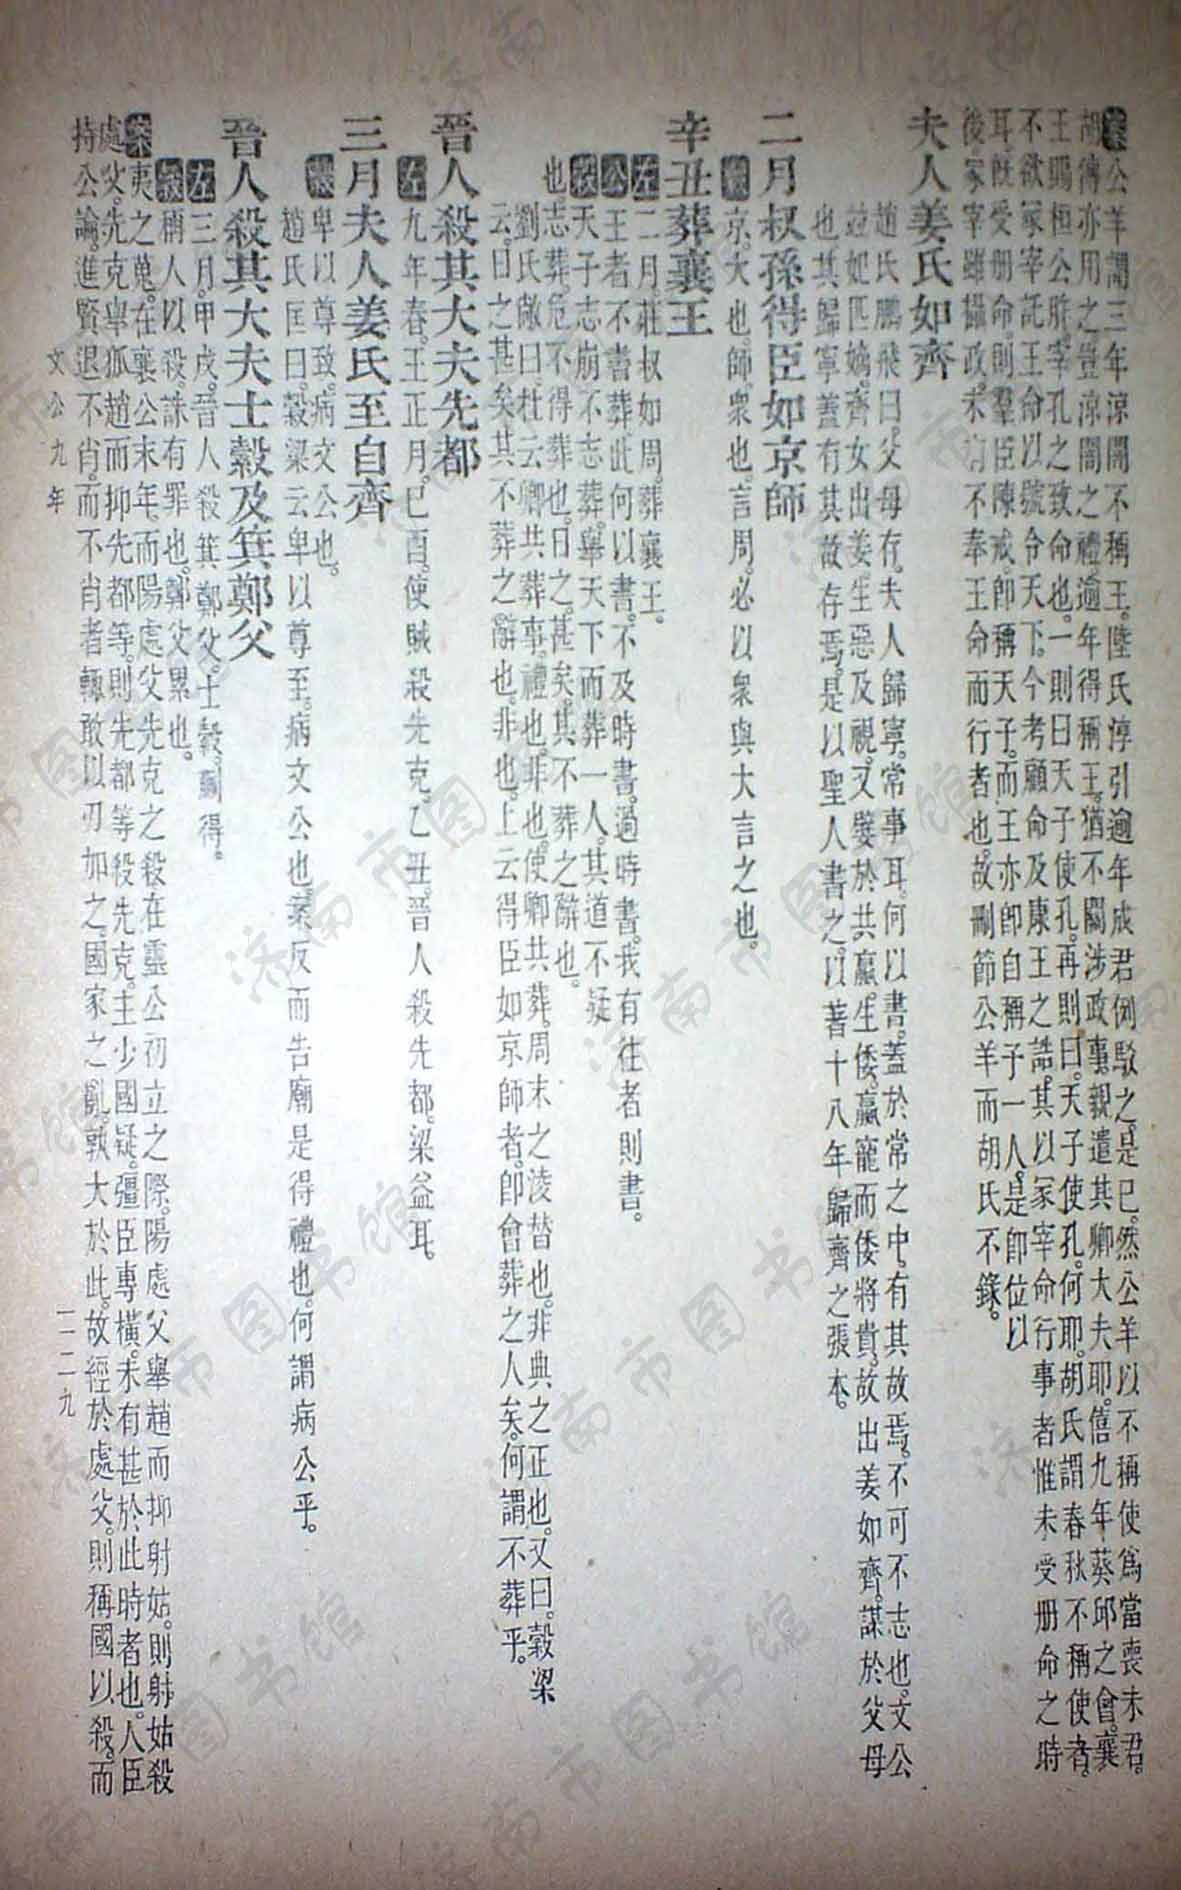 案公羊謂三年諒闇不稱王。陸氏淳引逾年成君例駁之。是已。然公羊以不稱使爲當喪未君。
胡傳亦用之。豈諒闇之禮。逾年得稱王。猶不關涉政事。親遣其卿大夫耶。僖九年葵邱之會。襄
王賜桓公胙。宰孔之致命也。一則曰天子使孔。再則曰。天子使孔。何耶。胡氏謂春秋不稱使者。
不欲冢宰託王命以號令天下。今考顧命及康王之誥。其以冢宰命行事者惟未受册命之時
耳。旣受册命。則羣臣陳戒。卽稱天子。而王亦卽自稱予一人。是卽位以
後。冢宰雖攝政。未有不奉王命而行者也。故刪節公羊而胡氏不錄。
夫人姜氏如齊
趙氏鵬飛曰。父母存。夫人歸寧。常事耳。何以書。蓋於常之中。有其故焉。不可不志也。文公
竝妃匹嫡。齊女出姜。生惡及視。又嬖於共嬴。生倭。嬴寵而倭將貴。故出姜如齊。謀於父母
也。其歸寧蓋有其故存焉。是以聖人書之。以著十八年歸齊之張本。
二月叔孫得臣如京師
穀京。大也。師。衆也。言周。必以衆與大言之也。
辛丑葬襄王
左二月。莊叔如周。葬襄王。
公王者不書葬。此何以書。不及時書。過時書。我有往者則書。
穀天子志崩不志葬。舉天下而葬一人。其道不疑
也。志葬。危不得葬也。日之。甚矣。其不葬之辭也。
劉氏敞曰。杜云。卿共葬事。禮也。非也。使卿共葬。周末之淩替也。非典之正也。又曰。穀梁
云。日之甚矣。其不葬之辭也。非也。上云得臣如京師者。卽會葬之人矣。何謂不葬乎。
晉人殺其大夫先都
左九年春。王正月。己酉。使賊殺先克。乙丑。晉人殺先都。梁益耳。
三月夫人姜氏至自齊
穀卑以尊致。病文公也。
趙氏匡曰。穀梁云卑以尊至。病文公也。案反而告廟是得禮也。何謂病公乎。
晉人殺其大夫士縠及箕鄭父
左三月。甲戌。晉人殺箕鄭父。士縠。蒯得。
穀稱人以殺。誅有罪也。鄭父累也。
案夷之蒐。在襄公末年。而陽處父先克之殺在靈公初立之際。陽處父舉趙而抑射姑。則射姑殺
處父。先克舉狐趙而抑先都等。則先都等殺先克。主少國疑。彊臣專橫。未有甚於此時者也。人臣
持公論。進賢退不肖。而不肖者輒敢以刃加之。國家之亂。孰大於此。故經於處父。則稱國以殺。而
文公九年
一二九